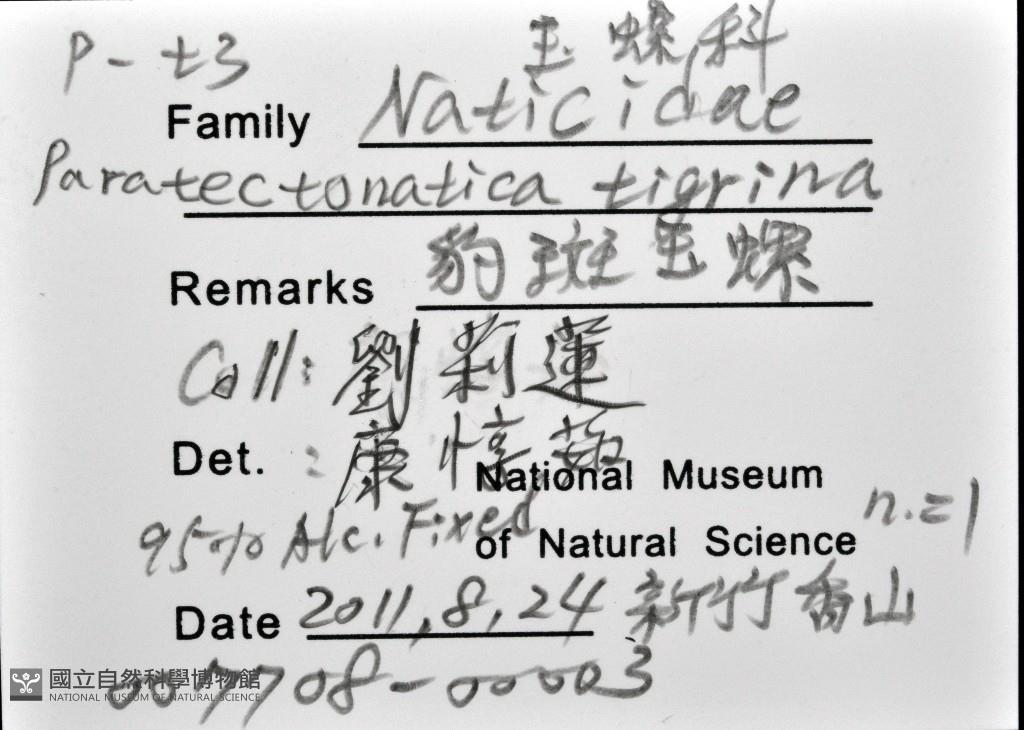 P-t3 玉螺科
Family Naticidae
Paratectonatica tigrina
Remarks 豹斑玉螺
Coll: 劉莉蓮
Det. : 康惇
National Museum
95% Alc. Fixed of Natural Science n.=1
Date 2011,8,24 新竹香山
007708-00003
國立自然科學博物館
NATIONAL MUSEUM OF NATURAL SCIENCE